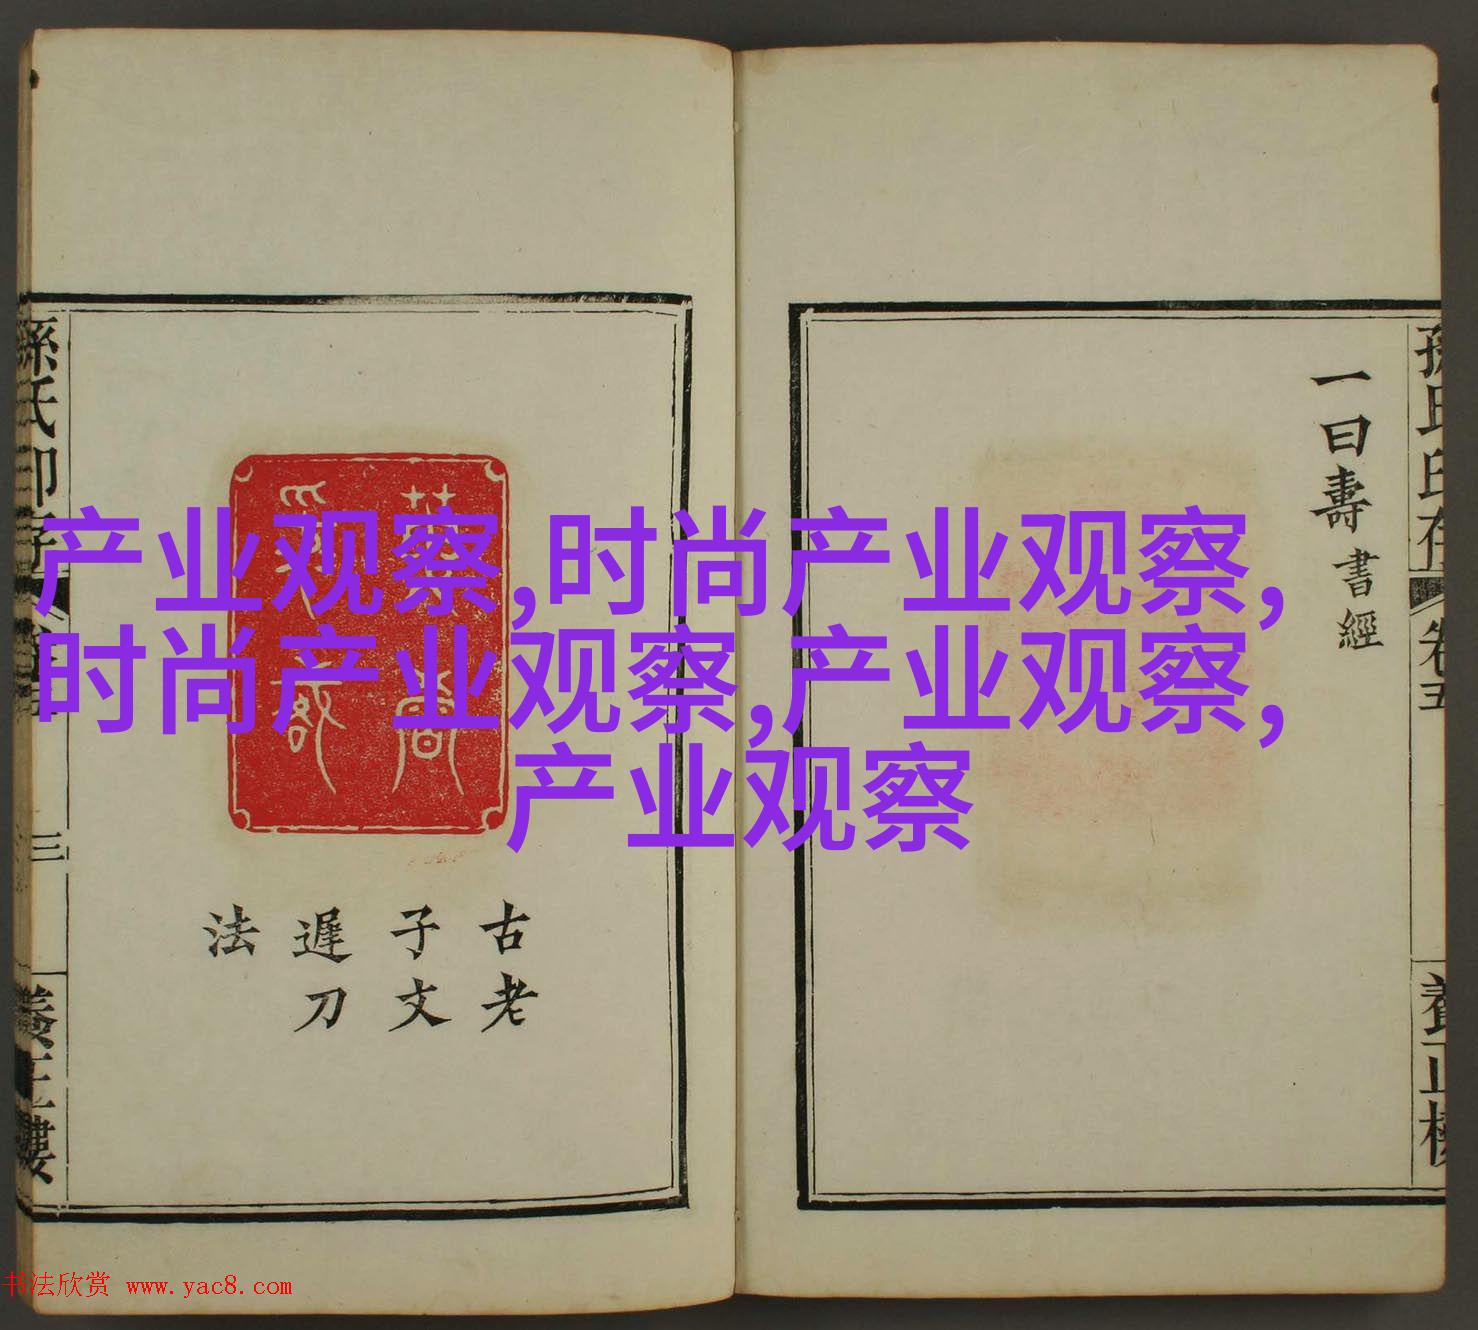 产业观察,时尚产业观察,
时尚产业观察,产业观察,
产业观察
一曰壽書經
孫氏印存
卷五
養正樓
古老
子文
遲刀
法
孫氏印存
三
養正樓
书法欣赏 www.yac8.com